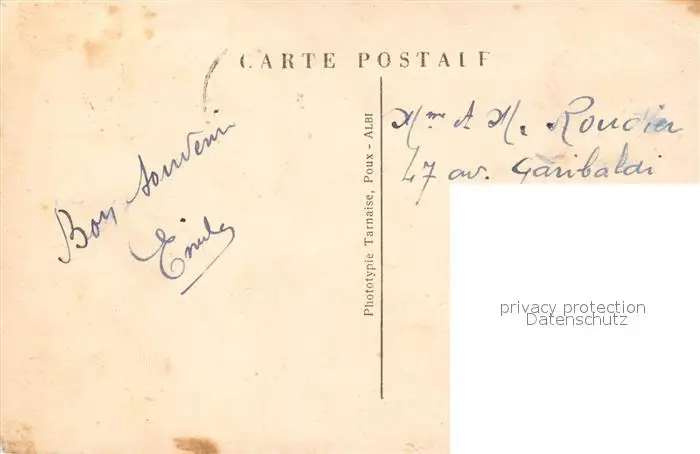 CARTE POSTALE
Bon souvenir
Emile
Phototypie Tarnaise, Poux - ALBI
Mme & M. Roudier
47 av. Garibaldi
privacy protection
Datenschutz